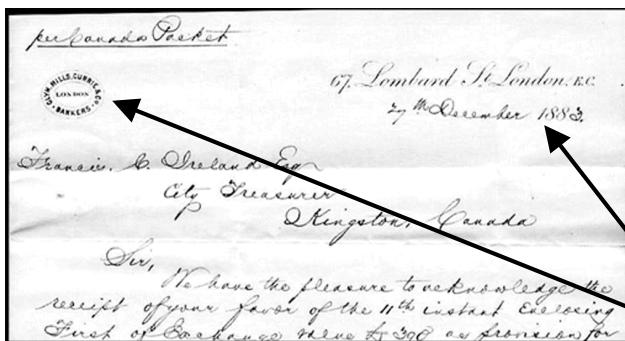 per Canada Packet
GLYN, MILLS, CURRIE & Co
LONDON
BANKERS
67, Lombard St. London, E.C.
27th December 1883.
Francis. C. Ireland Esq
City Treasurer
Kingston, Canada
Sir,
We have the pleasure to acknowledge the
receipt of your favor of the 11th instant Enclosing
First of Exchange value £ 300 as provision for